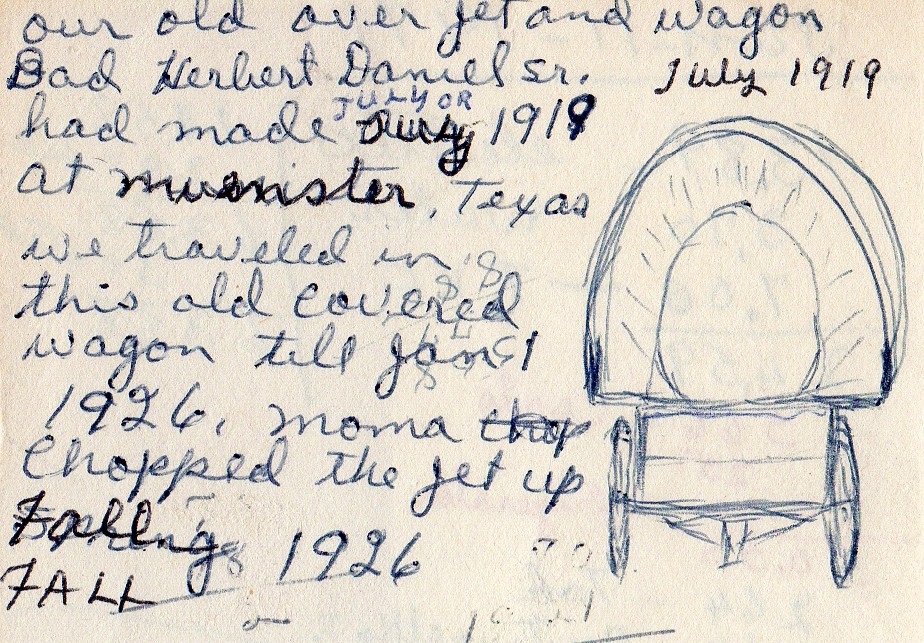 our old over Jet and wagon
Dad Herbert Daniel sr. July 1919
JULY OR
had made July 1919
at muenster, Texas
we traveled in
this old covered
wagon till Jan 1
1926, moma chop
Chopped the Jet up
Fall
Spring 1926
FALL